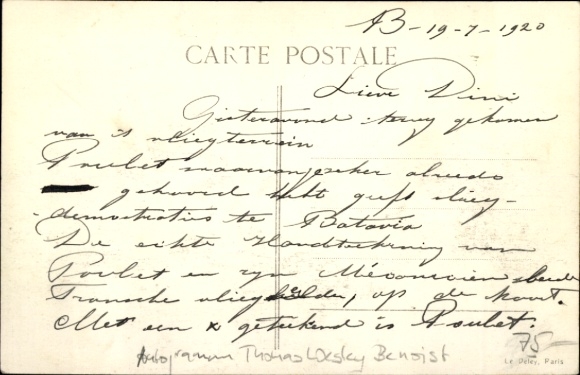 B - 19-7-1920
CARTE POSTALE
Lieve Dini
Gisteravond terug gekomen
van 't vliegterrein
Poulet waarvan je zeker alreeds
gehoord hebt geeft vlieg-
demonstraties te Batavia
De echte Handteekening van
Poulet en zyn Mécanicien beide
Fransche vlieghelden, op de kaart.
Met een x geteekend is Poulet.
75-
Le Deley, Paris
Thomas Wesley Benoist